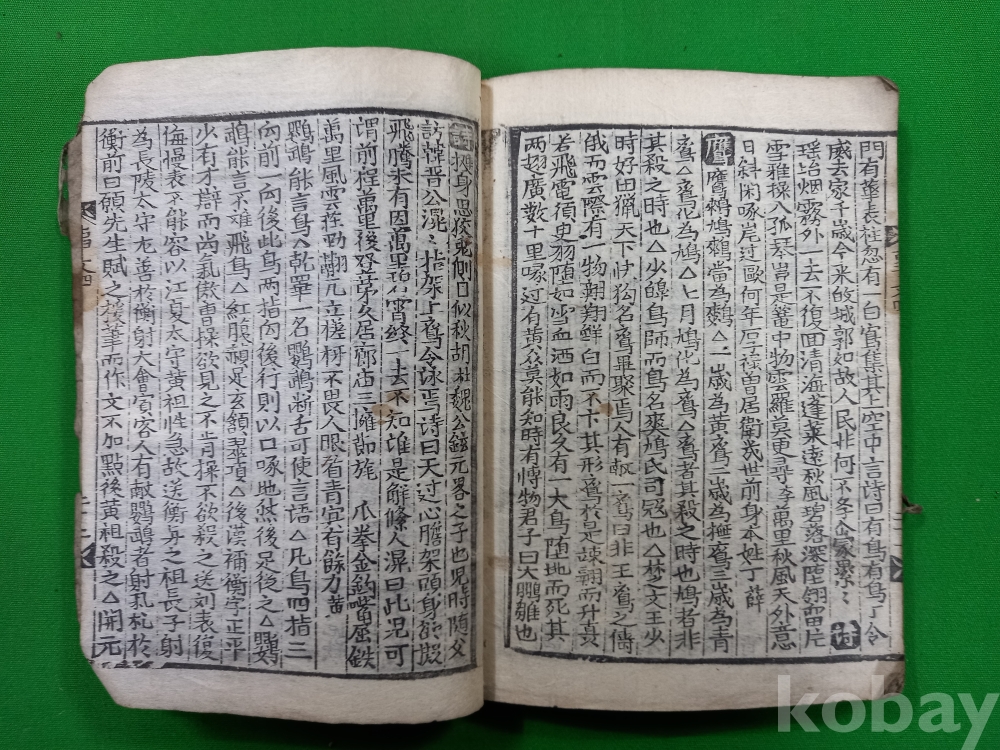 門有華表柱忽有一白鶴集其上空中言詩曰有鳥有鳥丁令
威去家千歲今来的城郭如故人民非何不學仙冢
瑶臺烟霧外一去不復回清海蓬莱遠秋風碧落深墮翎留片
雪雅操入孤琴豈是籠中物雲羅莫更尋李萬里秋風天外意
日斜閑啄岸过歐何年厄祿曽居衛幾世前身本姓丁薛
鷹鷹鷞鳩鷞當為鷞△二歲為黃鷹二歲為撫鷹三歲為青
鷹△鷹化為鳩△七月鳩化為鷹△鷹者其殺之時也鳩者非
其殺之時也△少皥鳥師而鳥名爽鳩氏司寇也△楚之文王少
時好田猟天下快狗名鷹畢聚焉人有献一鷹曰非王鷹之儔
俄而雲際有一物翔翔鮮白而不卞其形鷹於是竦翮而升矗
若飛電須史羽随如雪血洒如雨良久有一大鳥随地而死其
兩翅廣數十里啄过有黃衆莫能知時有愽物君子曰大鵬雛也
㩳身思狡兔側目似秋胡杜魏公鉉元畧之子也児時随父
訪韓晋公滉々指架上鷹令咏焉詩曰天过心膽架頭身欲㪯
飛騰未有因萬里碧霄終一去不知誰是解絛人滉曰此児可
謂前程萬里後登茅久居廊庙三擁節旄 爪拳金鈎嘴屈鉄
萬里風雲在勁翮兀立槎枒不畏人眼看青㝠有餘力黃
鸚鵡能言鳥△乾睪一名鸚鵡断舌可使言語△凡鳥四指三
向前一向後此鳥兩指向後行則以口啄地然後足後之△鸚
鵡能言不难飛鳥△紅腹觜足玄額翠項△後漢祢衡字正平
少有才辯而尚氣傲曹操欲見之不肯操不欲殺之送刘表復
侮慢表不能容以江夏太守黃祖性急故送衡身之祖長子射
為長陵太守尤善於衡射大會賓客人有献鸚鵡者射孔札於
衡前曰領先生賦之援筆而作文不加點後黃祖殺之△開元
kobay